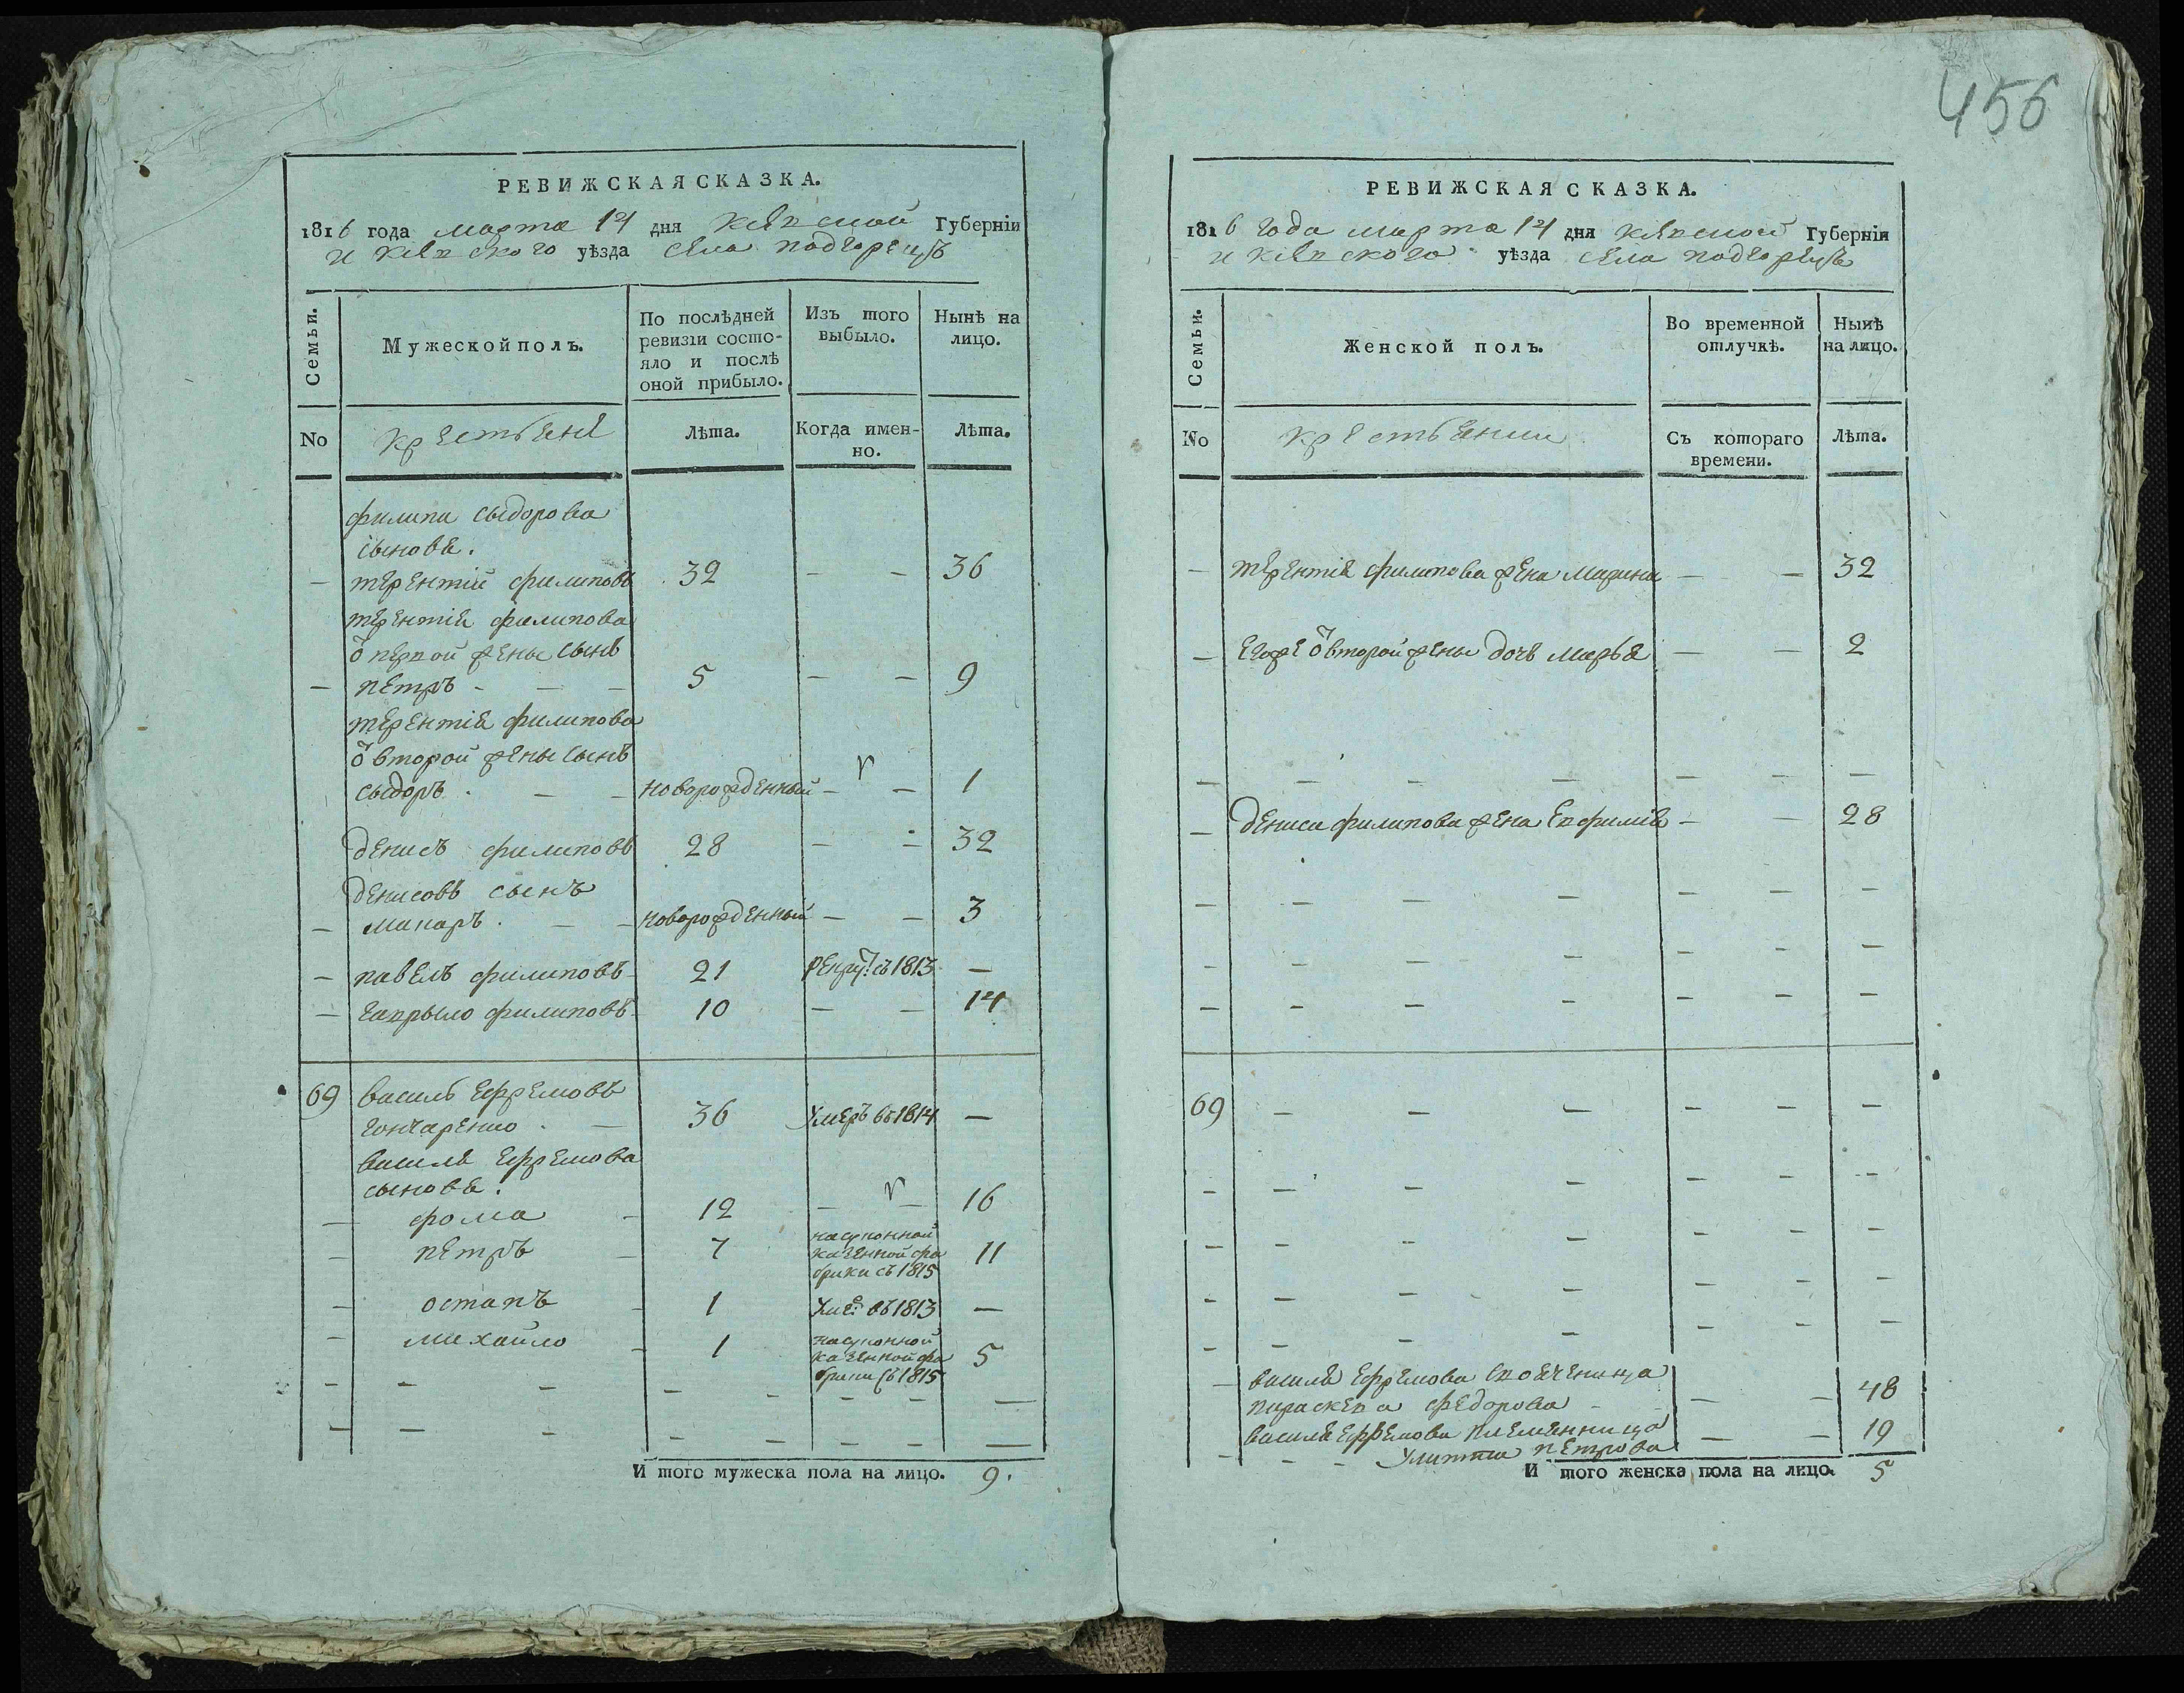 РЕВИЖСКАЯ СКАЗКА.
1816 года марта 14 дня Кіевской Губерніи
и Кіевского уѣзда села Подгорецъ
Семьи.
Мужеской полъ.
По послѣдней ревизіи состо-
яло и послѣ
оной прибыло.
Изъ того
выбыло.
Нынѣ на
лицо.
No
крестьяне
Лѣта.
Когда имен-
но.
Лѣта.
филипа сыдорова
сыновя.
— терентій филиповъ 32 — — 36
терентія филипова
ѿ первой жены сынъ
— петръ — — 5 — — 9
терентія филипова
ѿ второй жены сынъ
сыдоръ — — новорожденный — — 1
денисъ филиповъ 28 — — 32
денисовъ сынъ
— макаръ — — новорожденный — — 3
— павелъ филиповъ 21 рекрут: съ 1813 —
— гаврыло филиповъ 10 — — 14
69 василь ефремовъ
гончаренко — 36 умеръ въ 1814 —
василя ефремова
сыновя:
— фома — 12 — — 16
— петръ — 7 на суконной
казенной фа
брики съ 1815 11
— остапъ — 1 уме: въ 1813 —
— михайло — 1 на суконной
казенной фа
брики съ 1815 5
И того мужеска пола на лицо. 9.
456
РЕВИЖСКАЯ СКАЗКА.
1816 года марта 14 дня Кіевской Губерніи
и Кіевского уѣзда села Подгорецъ
Семьи.
Женской полъ.
Во временной
отлучкѣ.
Нынѣ
на лицо.
No
крестьянки
Съ котораго
времени.
Лѣта.
— терентія филипова жена марина — — 32
— егоже ѿ второй жены дочь марья — — 2
— — — — — — —
— дениса филипова жена евфимія — — 28
— — — — — — —
— — — — — — —
— — — — — — —
69 — — — — — —
— — — — — — —
— — — — — — —
— — — — — — —
— — — — — — —
— василя ефремова своячиница
параскева федорова — — 48
василя ефремова племянница — — 19
— — — Улитта петрова
И того женска пола на лицо. 5